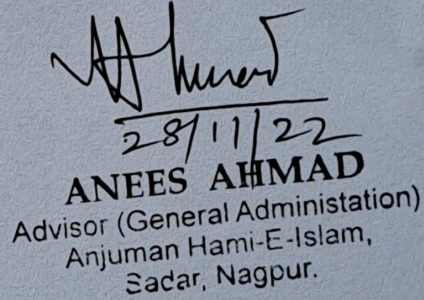 Ahmad
28/11/22
ANEES AHMAD
Advisor (General Administation)
Anjuman Hami-E-Islam,
Sadar, Nagpur.